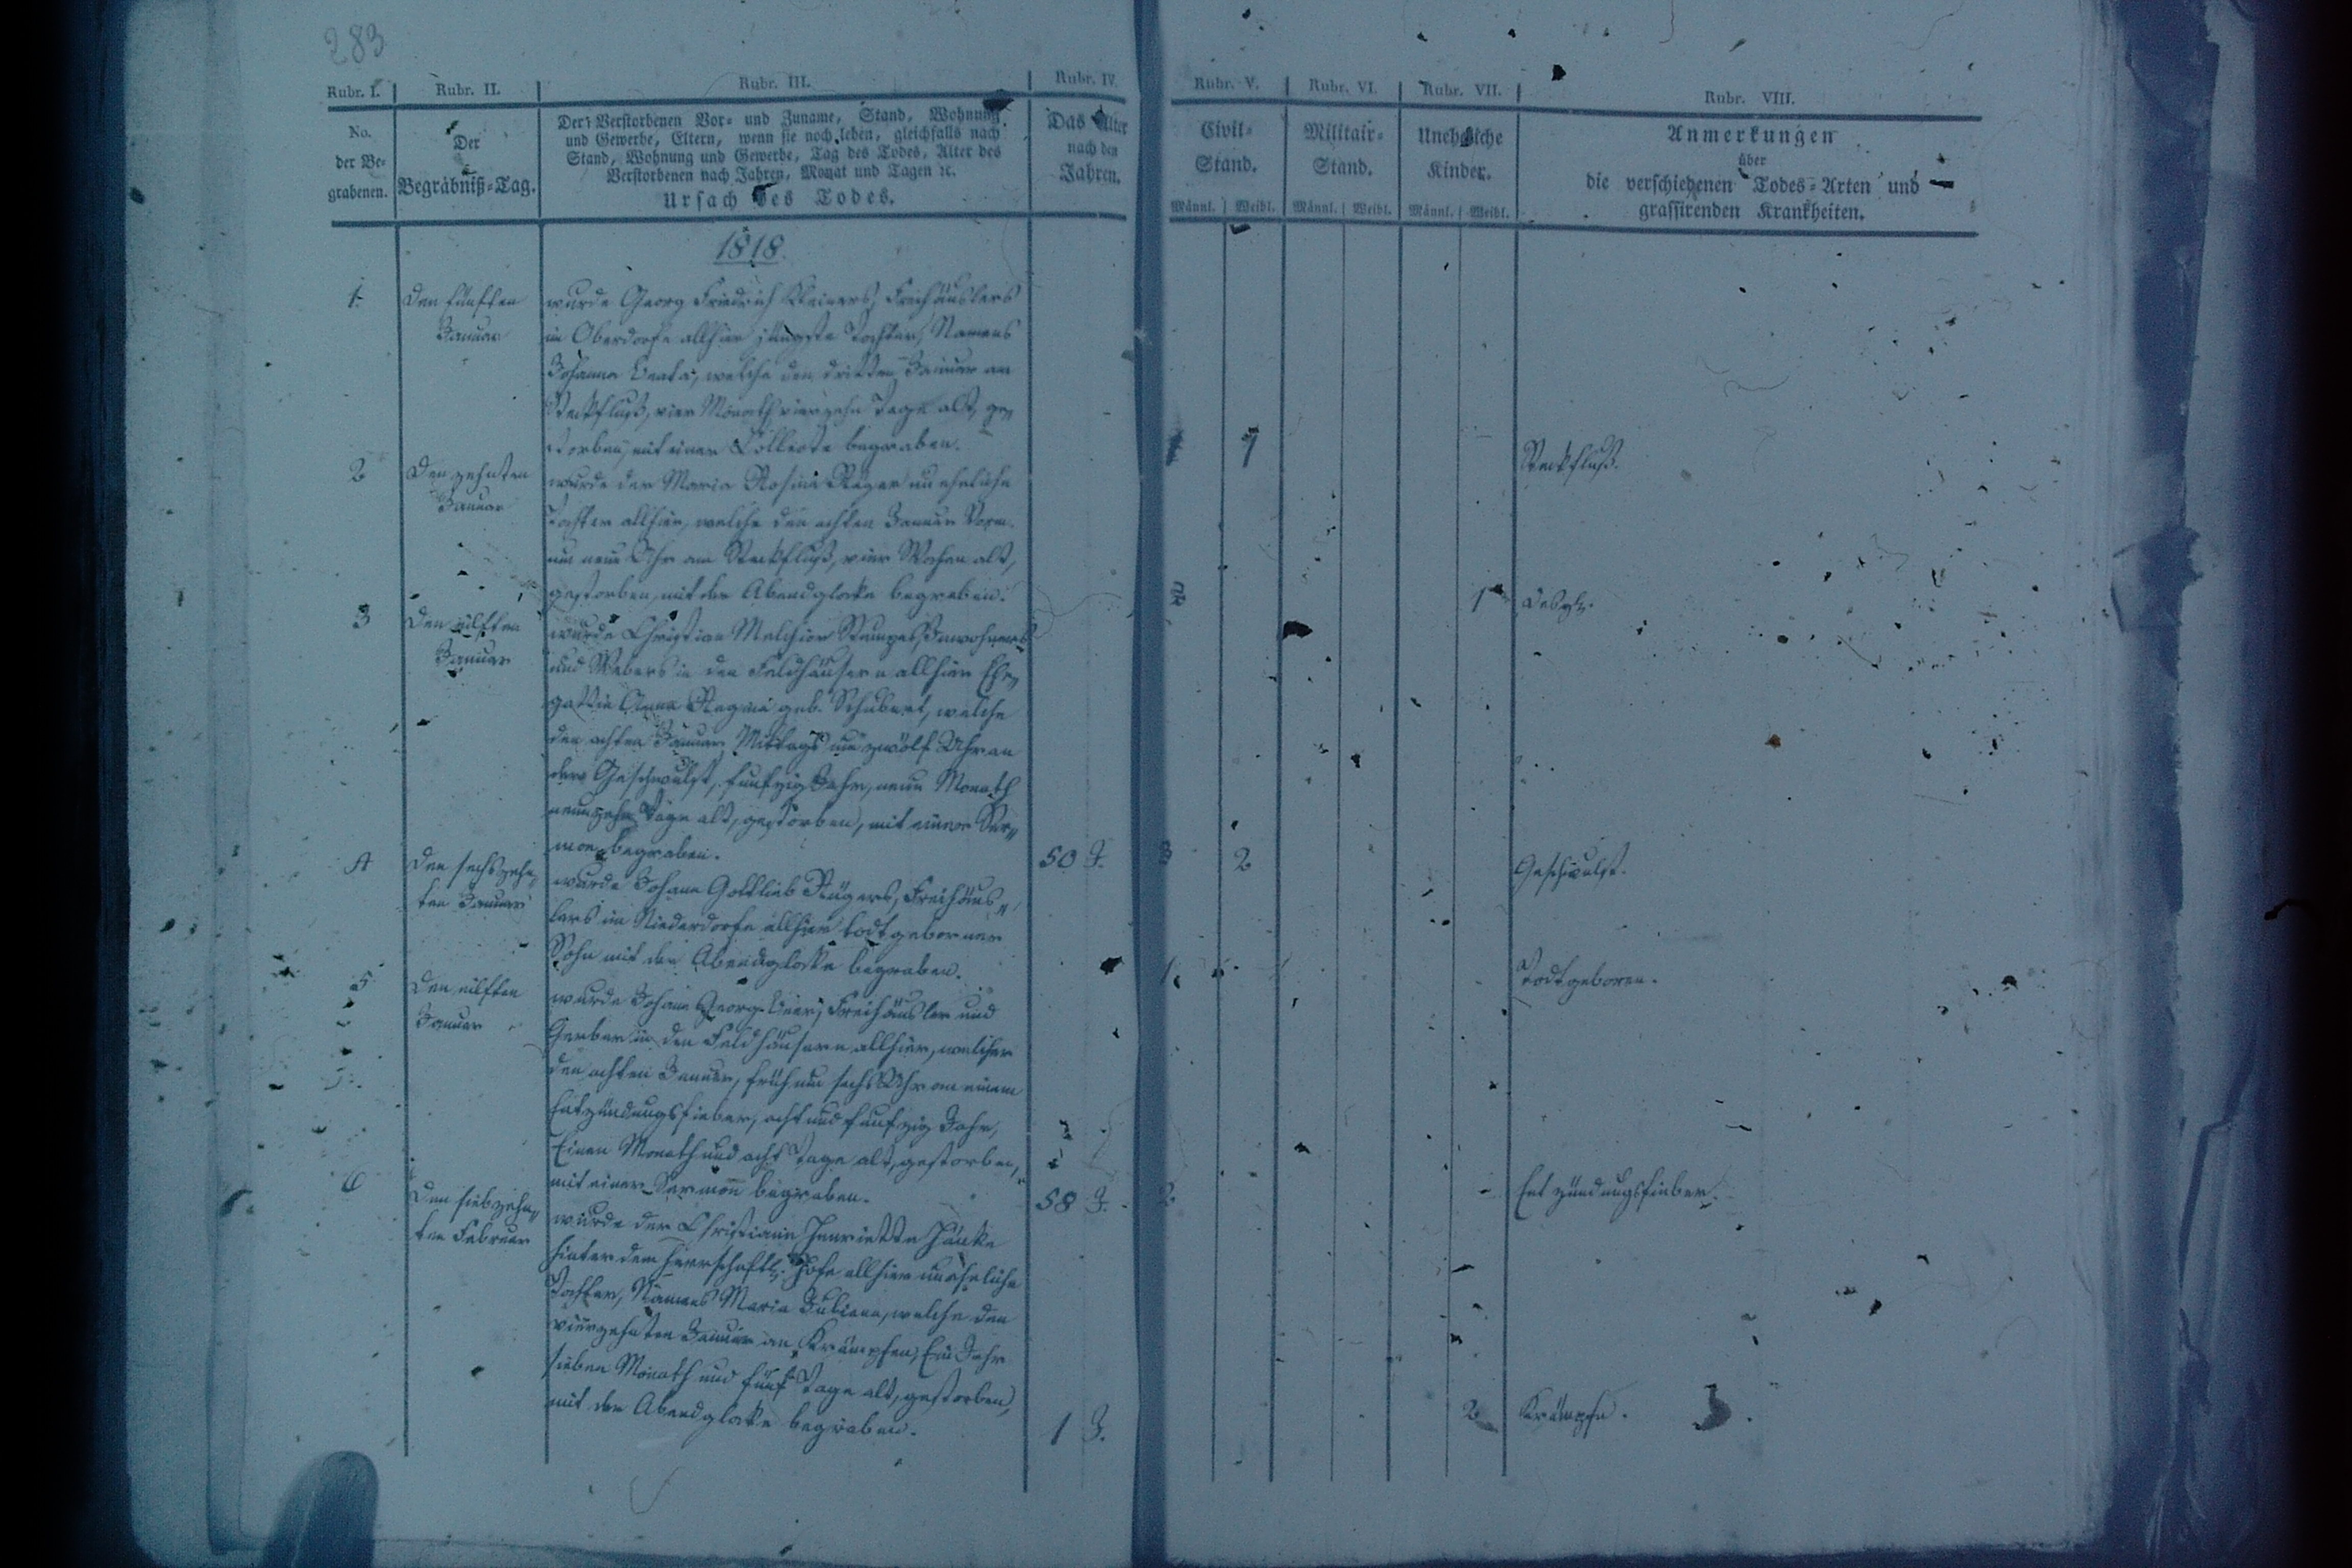 283
Rubr. I. Rubr. II. Rubr. III. Rubr. IV. Rubr. V. Rubr. VI. Rubr. VII. Rubr. VIII.
No.
der Be-
grabenen.
Der
Begräbniß-Tag.
Der Verstorbenen Vor- und Zuname, Stand, Wohnung
und Gewerbe, Eltern, wenn sie noch leben, gleichfalls nach
Stand, Wohnung und Gewerbe, Tag des Todes, Alter des
Verstorbenen nach Jahren, Monat und Tagen ꝛc.
Ursach des Todes.
Das Alter
nach den
Jahren.
Civil-
Stand.
Männl. Weibl.
Militair-
Stand.
Männl. Weibl.
Uneheliche
Kinder.
Männl. Weibl.
Anmerkungen
über
die verschiedenen Todes-Arten und
grassirenden Krankheiten.
1818.
1.
Den fünften
Januar
wurde Georg Friedrich Freihäuslers
im Oberdorfe allhier jüngste Tochter, Namens
Johanna Beata, welche den dritten Januar am
Steckfluß, vier Monath vierzehn Tage alt, ge-
storben, mit einer Collecte begraben.
1
Steckfluß.
2
Den zehnten
Januar
wurde der Maria Rosina uneheliche
Tochter allhier, welche den achten Januar Vorm.
um neun Uhr am Steckfluß, vier Wochen alt,
gestorben, mit der Abendglocke begraben.
1
desgl.
3
Den eilften
Januar
wurde Christian Melchior Inwohners
und Webers in den Feldhäusern allhier Ehe-
gattin Anna Regina geb. Schubert, welche
den achten Januar Mittags um zwölf Uhr an
der Geschwulst, funfzig Jahr, neun Monath
neunzehn Tage alt, gestorben, mit einer Ser-
mon begraben.
50 J.
2
Geschwulst.
4
Den sechszehn-
ten Januar
wurde Johann Gottlieb Freihäus-
lers im Niederdorfe allhier todtgeborner
Sohn mit der Abendglocke begraben.
1.
Todtgeboren.
5
Den eilften
Januar
wurde Johann Georg Freihäusler und
Gerber in den Feldhäusern allhier, welcher
den achten Januar, früh um sechs Uhr an einem
Entzündungsfieber, acht und funfzig Jahr,
Einen Monath und acht Tage alt, gestorben,
mit einer Sermon begraben.
58 J.
2.
Entzündungsfieber.
6
Den siebzehn-
ten Februar
wurde der Christiane Henriette
hinter dem herrschaftl. Hofe allhier uneheliche
Tochter, Namens Maria Juliana, welche den
vierzehnten Januar an Krämpfen, Ein Jahr
sieben Monath und fünf Tage alt, gestorben,
mit der Abendglocke begraben.
1 J.
2
Krämpfe.